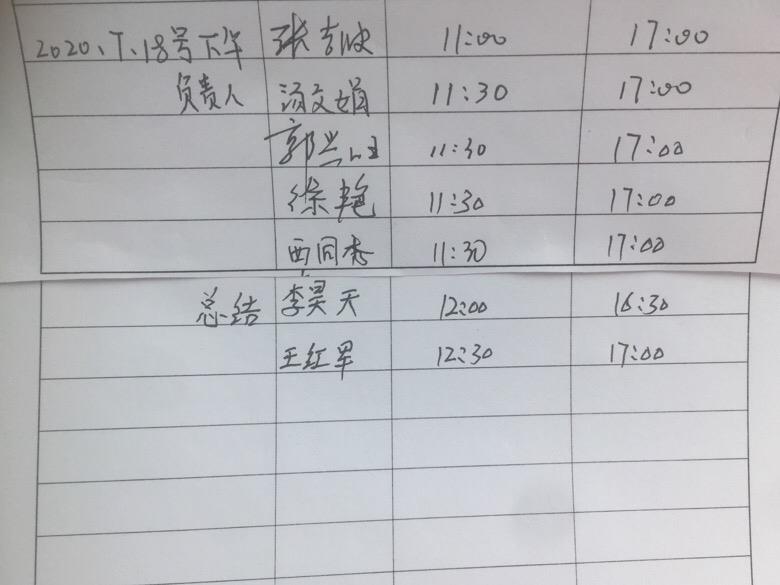 2020.7.18号下午 张吉波 11:00 17:00
负责人 汤文娟 11:30 17:00
郭 11:30 17:00
徐艳 11:30 17:00
西同秀 11:30 17:00
总结 李昊天 12:00 16:30
王红军 12:30 17:00